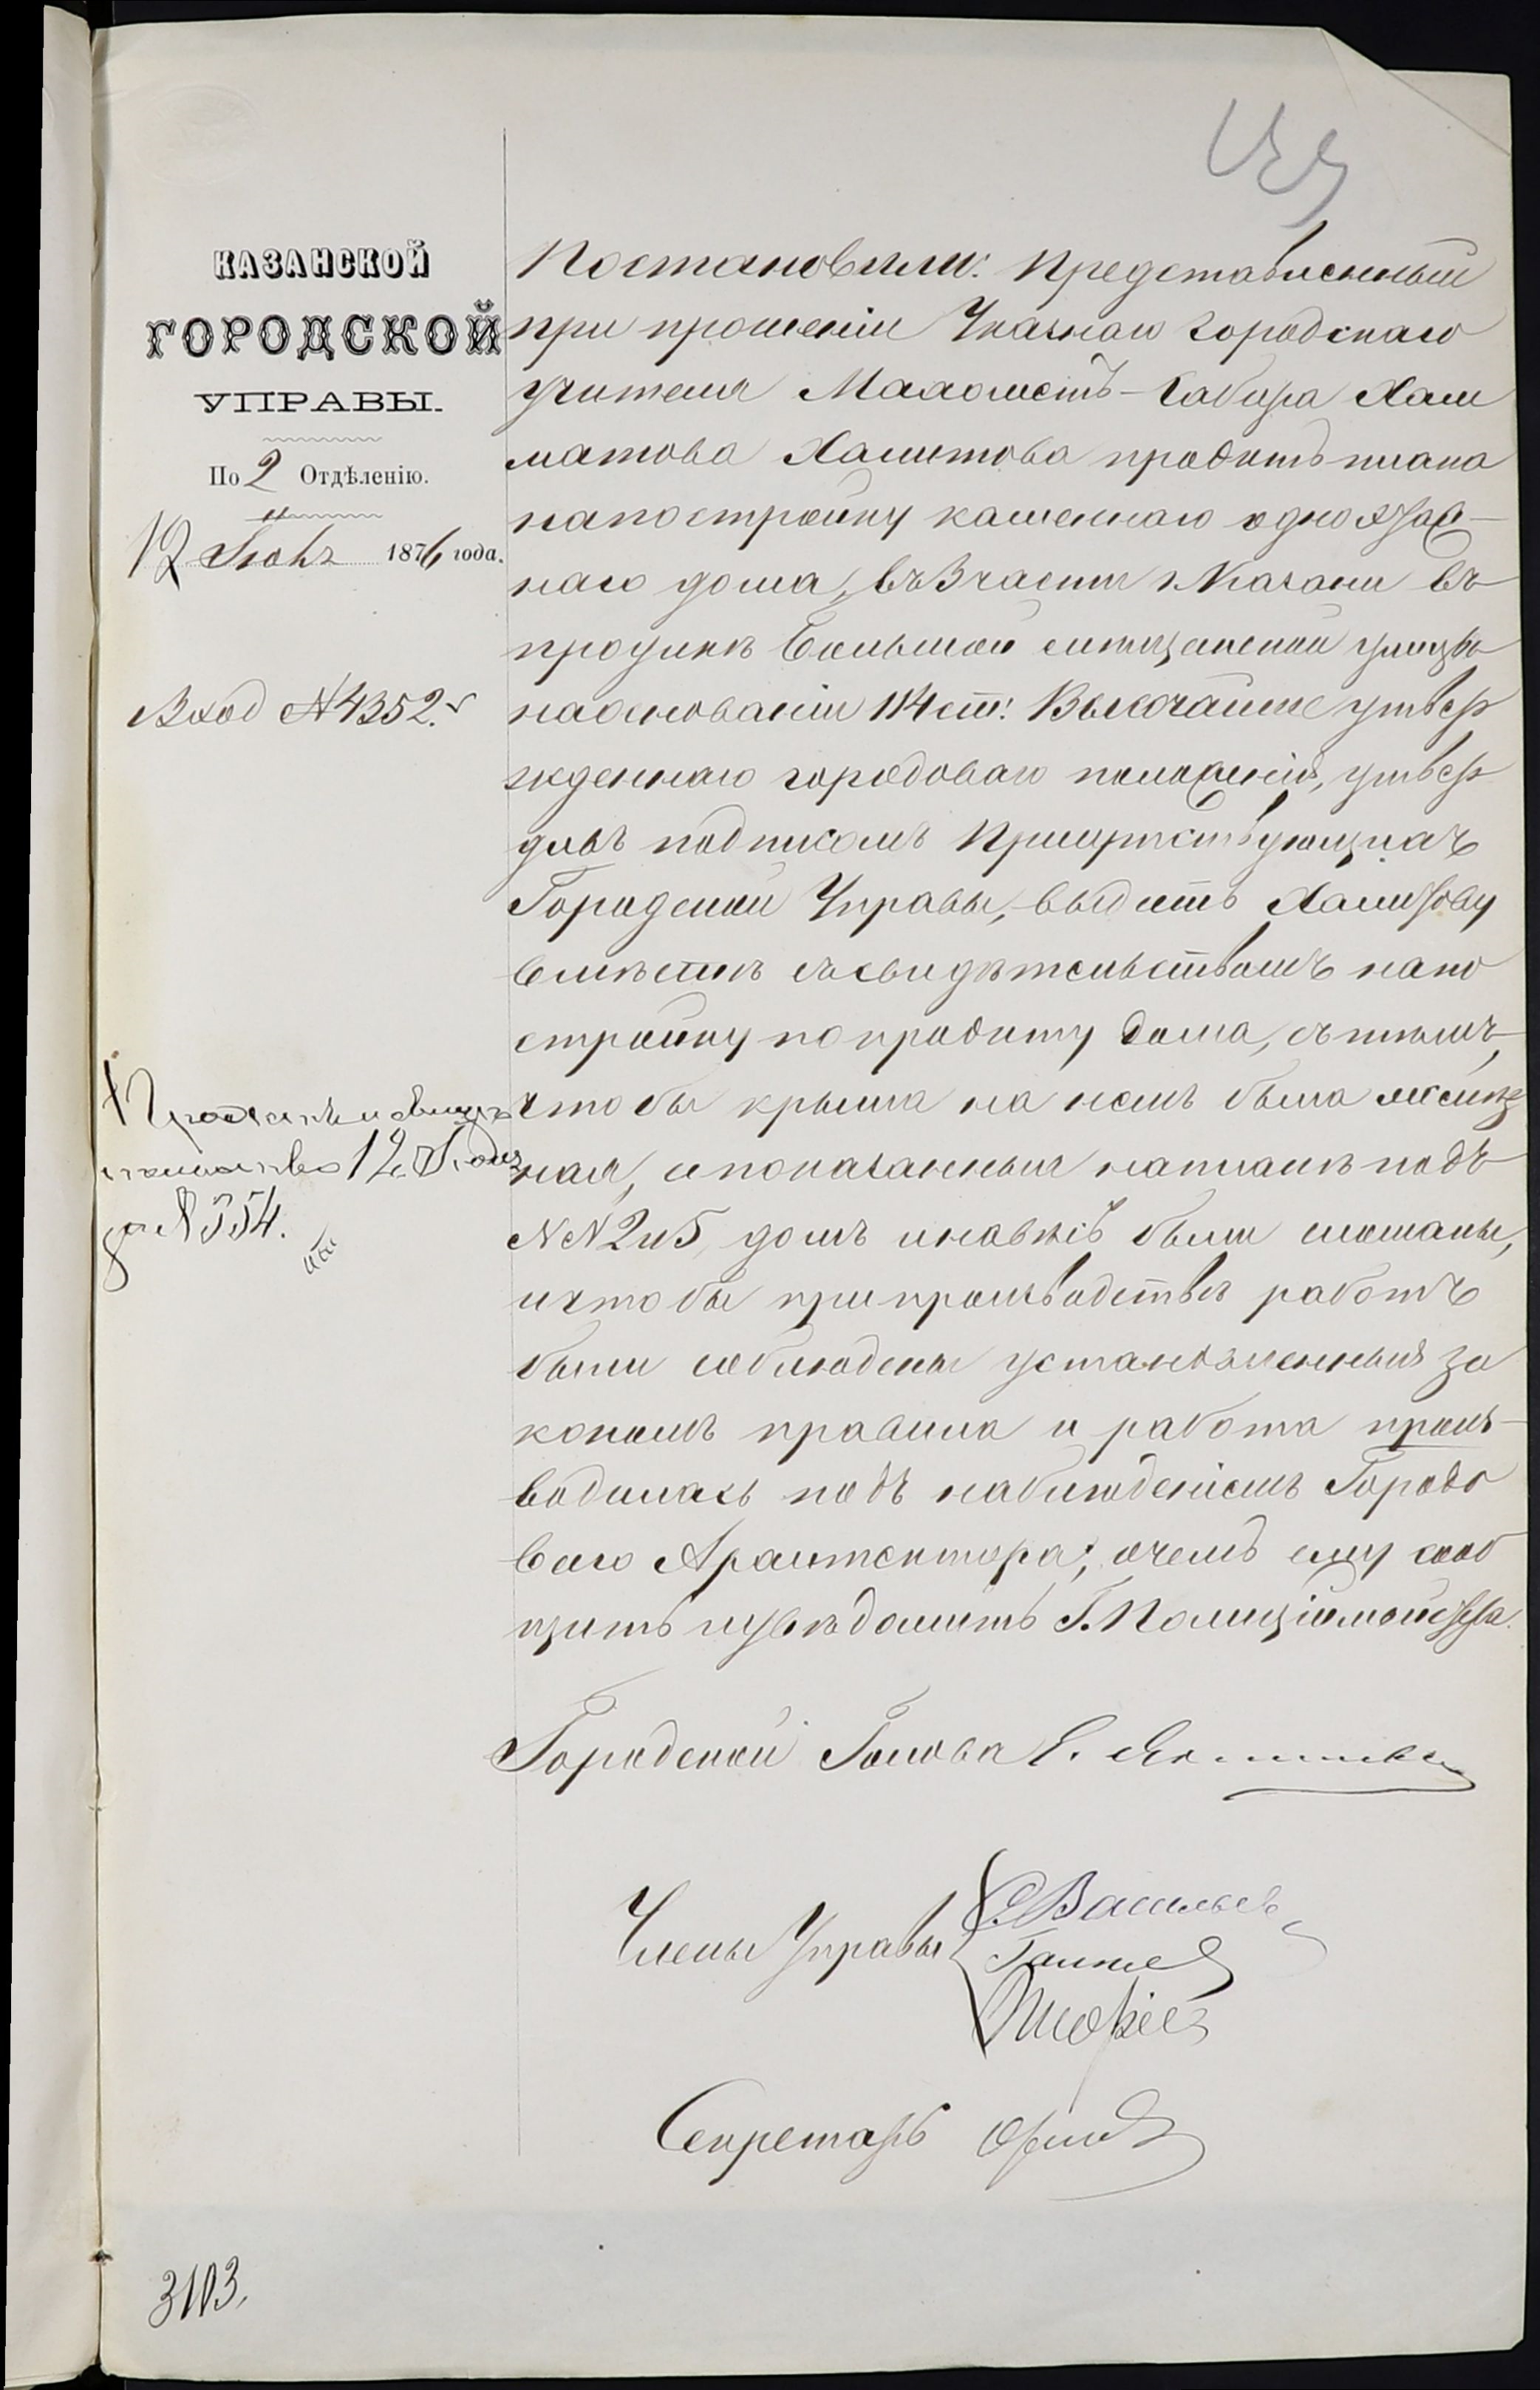 КАЗАНСКОЙ
ГОРОДСКОЙ
УПРАВЫ.
По 2 Отдѣленію.
12 Іюня 1876 года.
Вход №4352.
Постановили: Представленный
при прошеніи Указнаго городскаго
учителя Махометъ-Кабира Хаш
матова Хашитова проэктъ плана
на постройку каменнаго одноэтаж-
наго дома, въ 3 части г. Казани въ
проулкѣ Большой ситцевской улицы
на основаніи 114 ст: Высочайше утвер
жденнаго городоваго положенія, утвер
дивъ подписомъ Присутствующихъ
Городской Управы, выдать Хашитову
вмѣстѣ съ свидѣтельствомъ на по
стройку по проэкту дома, съ тѣмъ,
чтобы крыша на немъ была желѣз
ная, и показанныя на планѣ подъ
№№ 2 и 5, домъ и навѣсъ были сломаны,
и чтобы при производствѣ работъ
были соблюдены установленныя за
кономъ правила и работа произ-
водилась подъ наблюденіемъ Городо
ваго Архитектора; о чемъ ему сооб
щить и увѣдомить Г. Полиціймейстера.
12 Іюня
за №554.
Городской Голова
Члены Управы
Васильевъ
Секретарь
3103.